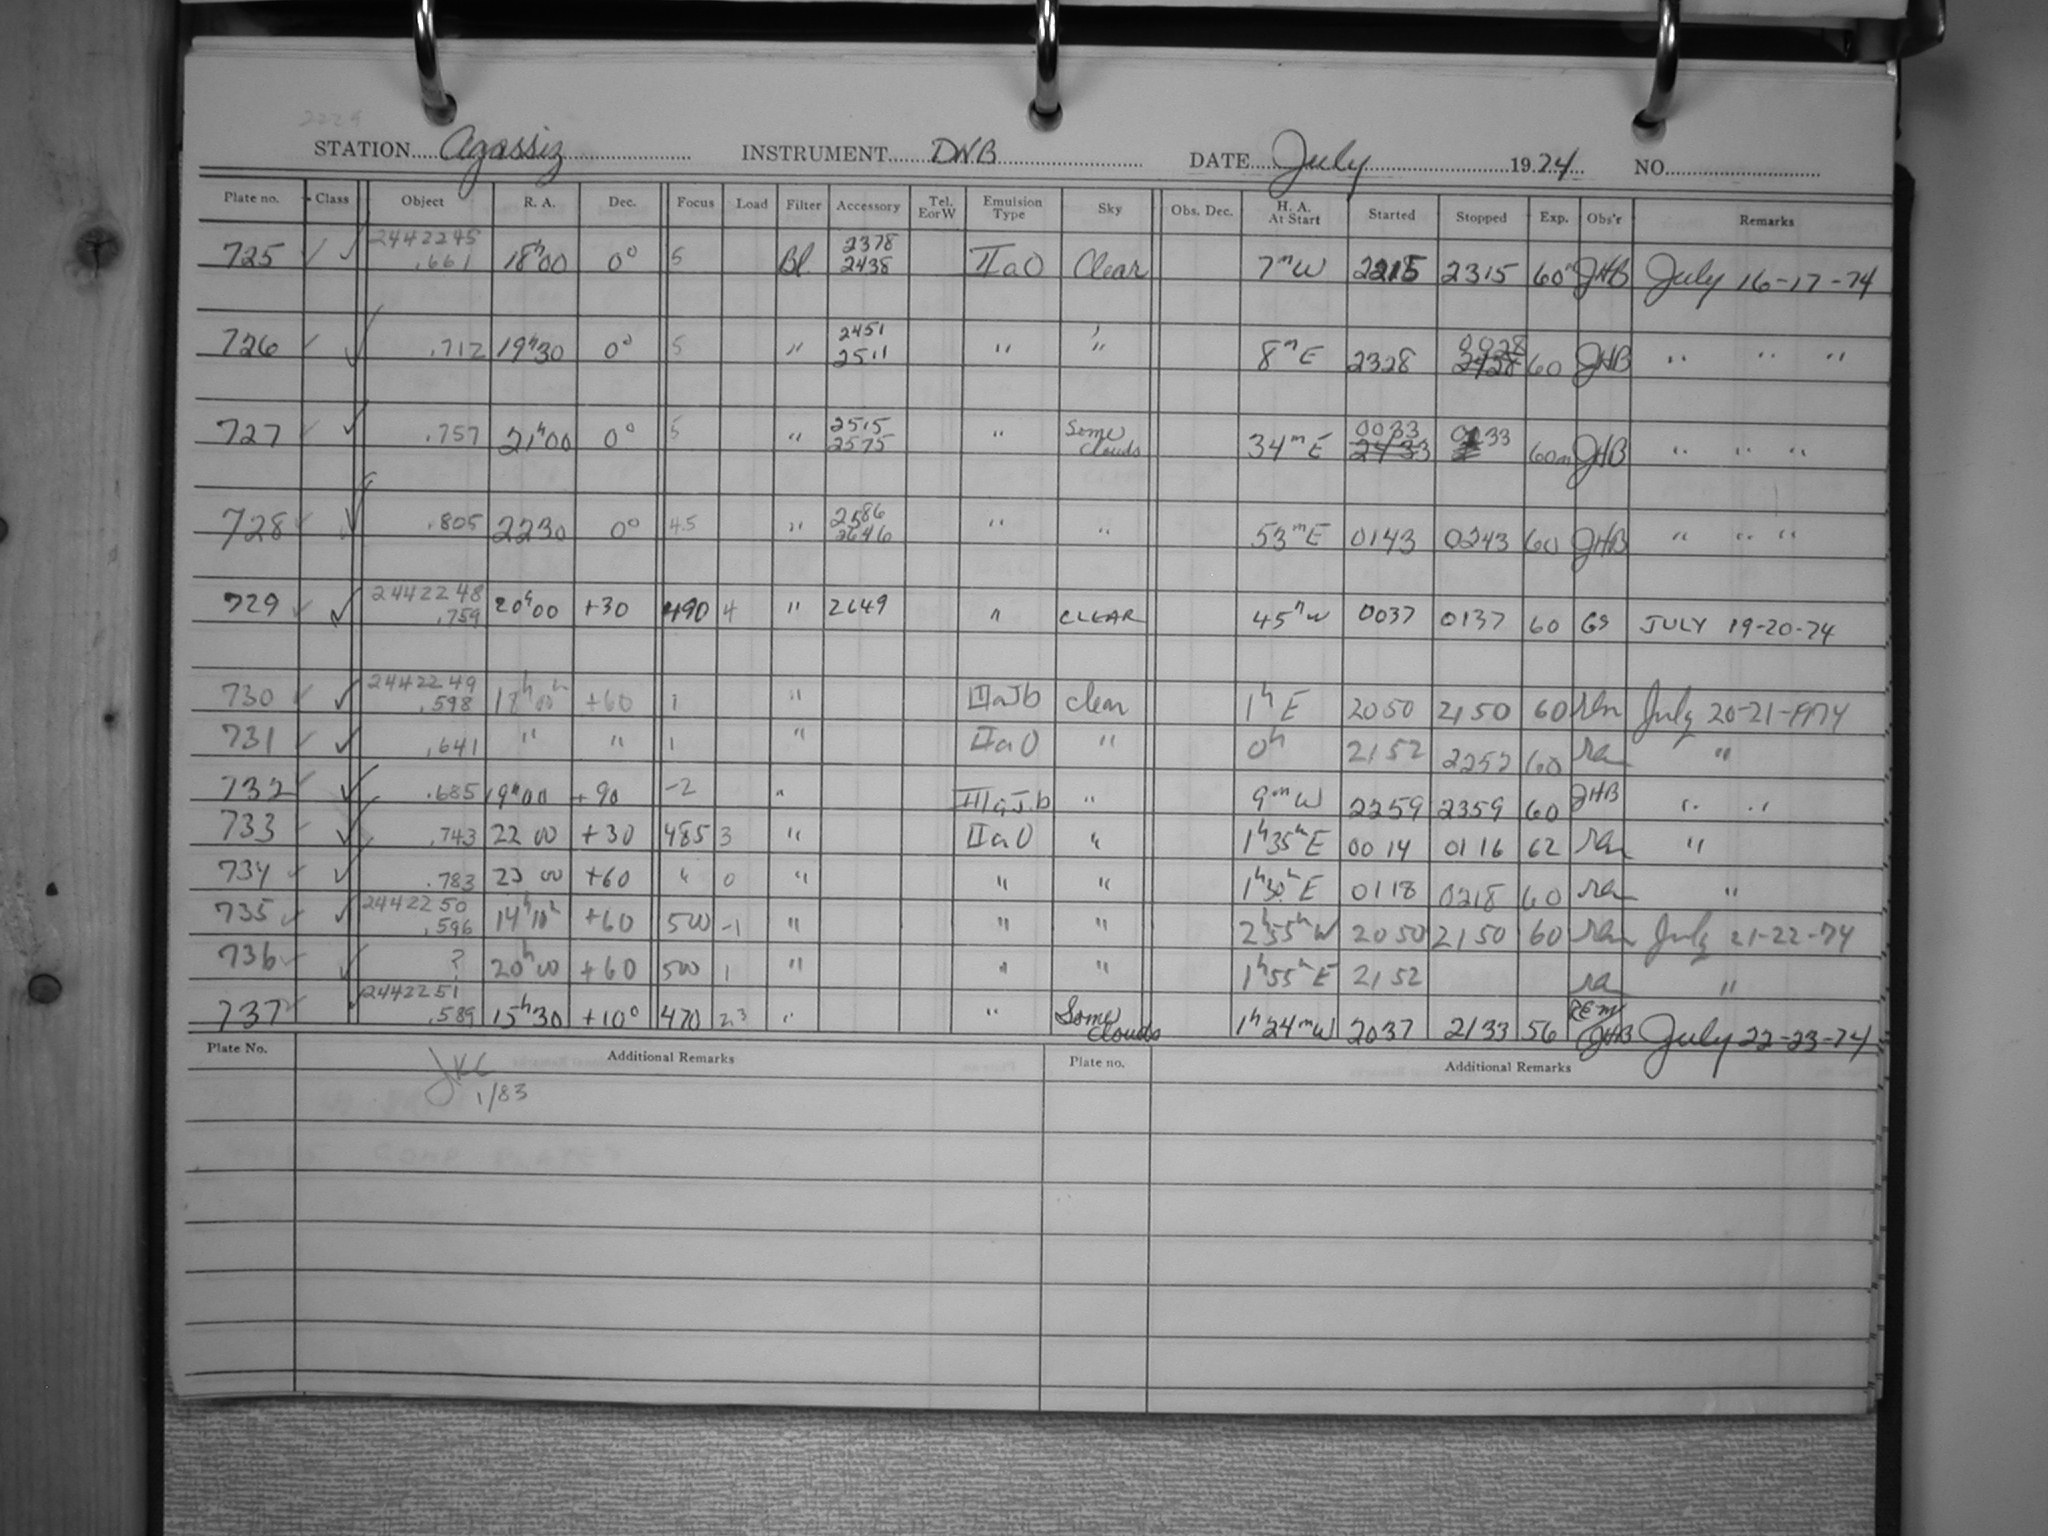 STATION Agassiz INSTRUMENT DNB DATE July 1974 NO.
Plate no. Class Object R. A. Dec. Focus Load Filter Accessory Tel. EorW Emulsion Type Sky Obs. Dec. H. A. At Start Started Stopped Exp. Obs'r Remarks
725 ✓ ✓ 2442245 .661 18h00 0° 5 Bl. 2378 2438 IIaO Clear 7mW 2215 2315 60m JHB July 16-17-74
726 ✓ ✓ .712 19h30 0° 5 " 2451 2511 " " 8mE 2328 0028 2428 60 JHB " " "
727 ✓ ✓ .757 21h00 0° 5 " 2515 2575 " Some Clouds 34mE 0033 2433 0133 60m JHB " " "
728 ✓ ✓ .805 2230 0° 4.5 " 2586 2646 " " 53mE 0143 0243 60 JHB " " "
729 ✓ ✓ 2442248 .759 20h00 +30 490 4 " 2649 " CLEAR 45mW 0037 0137 60 GS JULY 19-20-74
730 ✓ ✓ 2442249 .598 18h00m +60 1 " IIaJb clear 1hE 2050 2150 60 rem July 20-21-1974
731 ✓ ✓ .641 " " 1 " IIaO " 0h 2152 2252 60 rem "
732 ✓ ✓ .685 19h00 +90 -2 " IIIaJb " 9mW 2259 2359 60 JHB " "
733 ✓ ✓ .743 22 00 +30 485 3 " IIaO " 1h35mE 0014 0116 62 rem "
734 ✓ ✓ .783 23 00 +60 " 0 " " " 1h30mE 0118 0218 60 rem "
735 ✓ ✓ 2442250 .596 14h10m +60 500 -1 " " " 2h55mW 2050 2150 60 rem July 21-22-74
736 ✓ ✓ ? 20h00 +60 500 1 " " " 1h55mE 2152 rem "
737 ✓ ✓ 2442251 .589 15h30 +10° 470 2.3 " " Some Clouds 1h24mW 2037 2133 56 REM/JHB July 22-23-74
Plate No. Additional Remarks Plate no. Additional Remarks
JKC
1/83